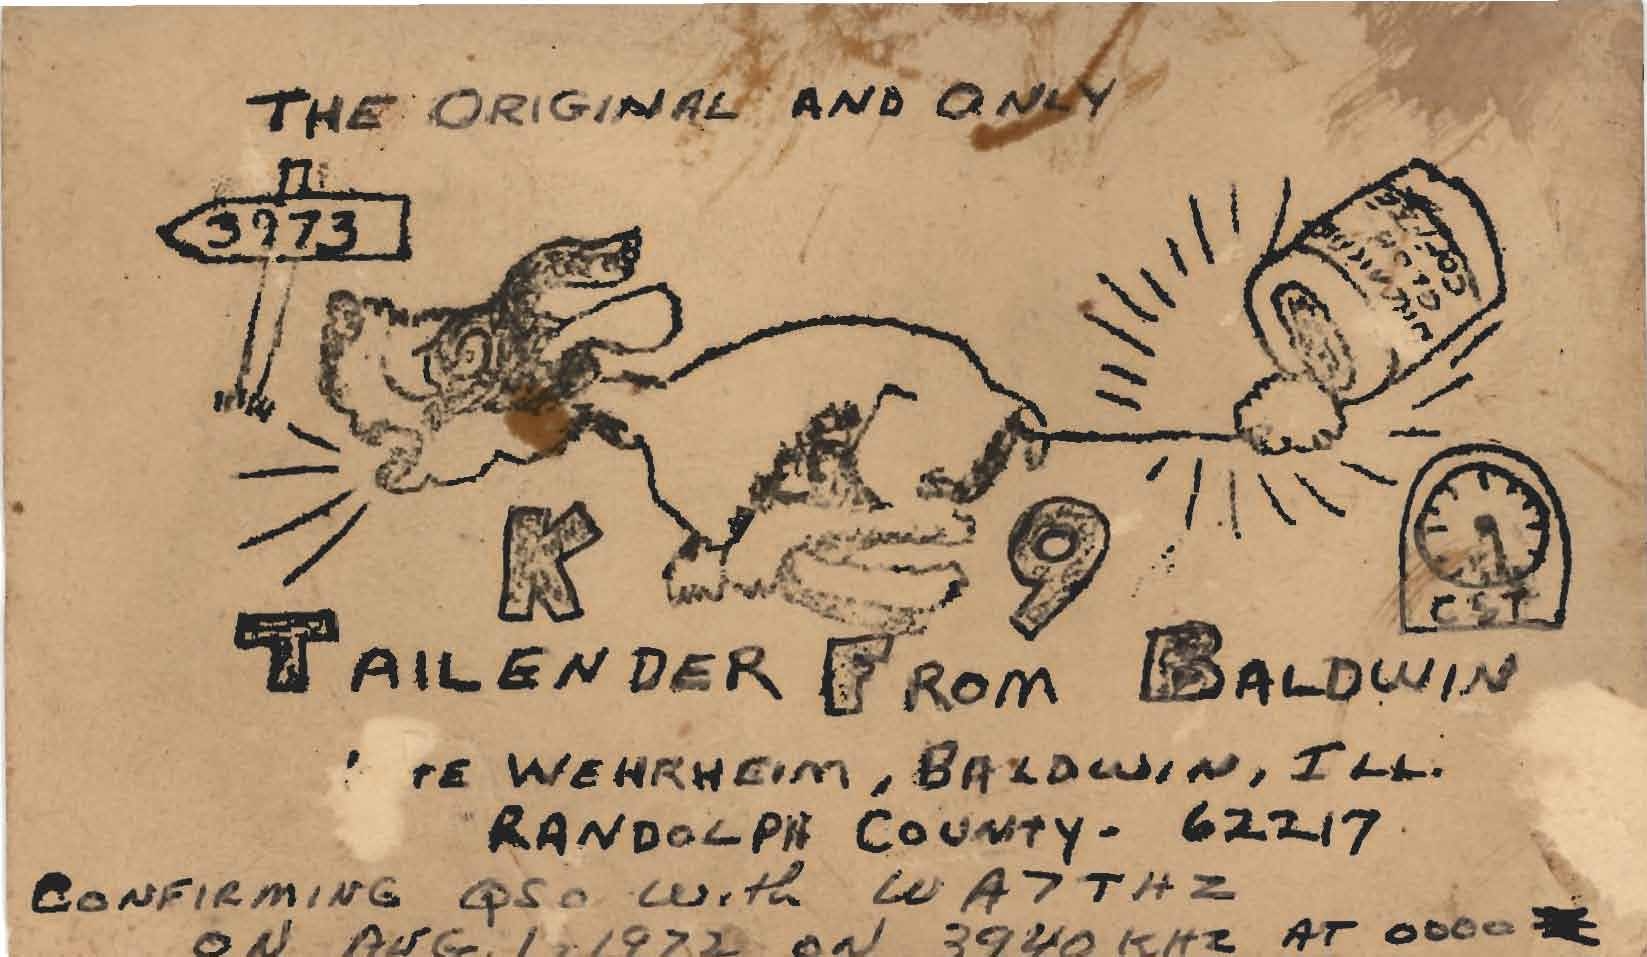 THE ORIGINAL AND ONLY
3973
K9
CST
TAILENDER FROM BALDWIN
WEHRHEIM, BALDWIN, ILL.
RANDOLPH COUNTY - 62217
CONFIRMING QSO With WA7THZ
ON AUG. 1, 1972 ON 3940 KHZ AT 0000